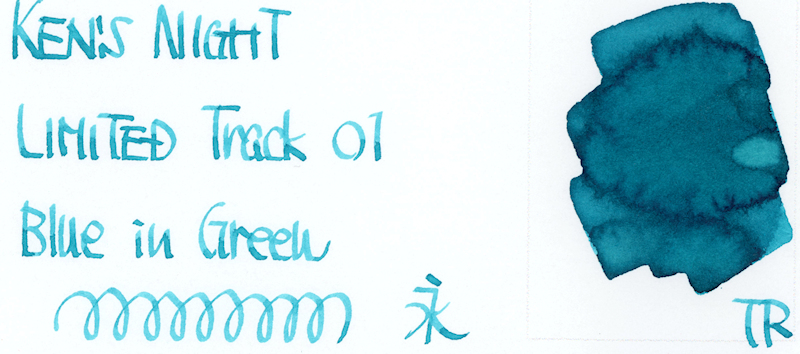 KEN'S NIGHT
LIMITED Track 01
Blue in Green
永
TR